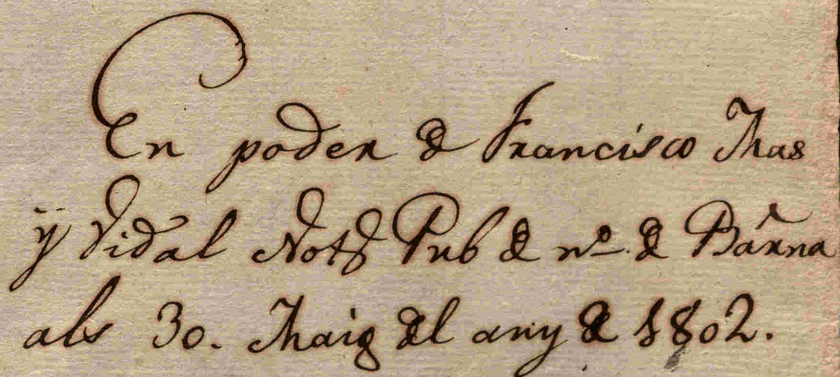 En poder de Francisco Mas
ÿ Vidal Nott Pub de nº de Barna
als 30. Maig del any de 1802.